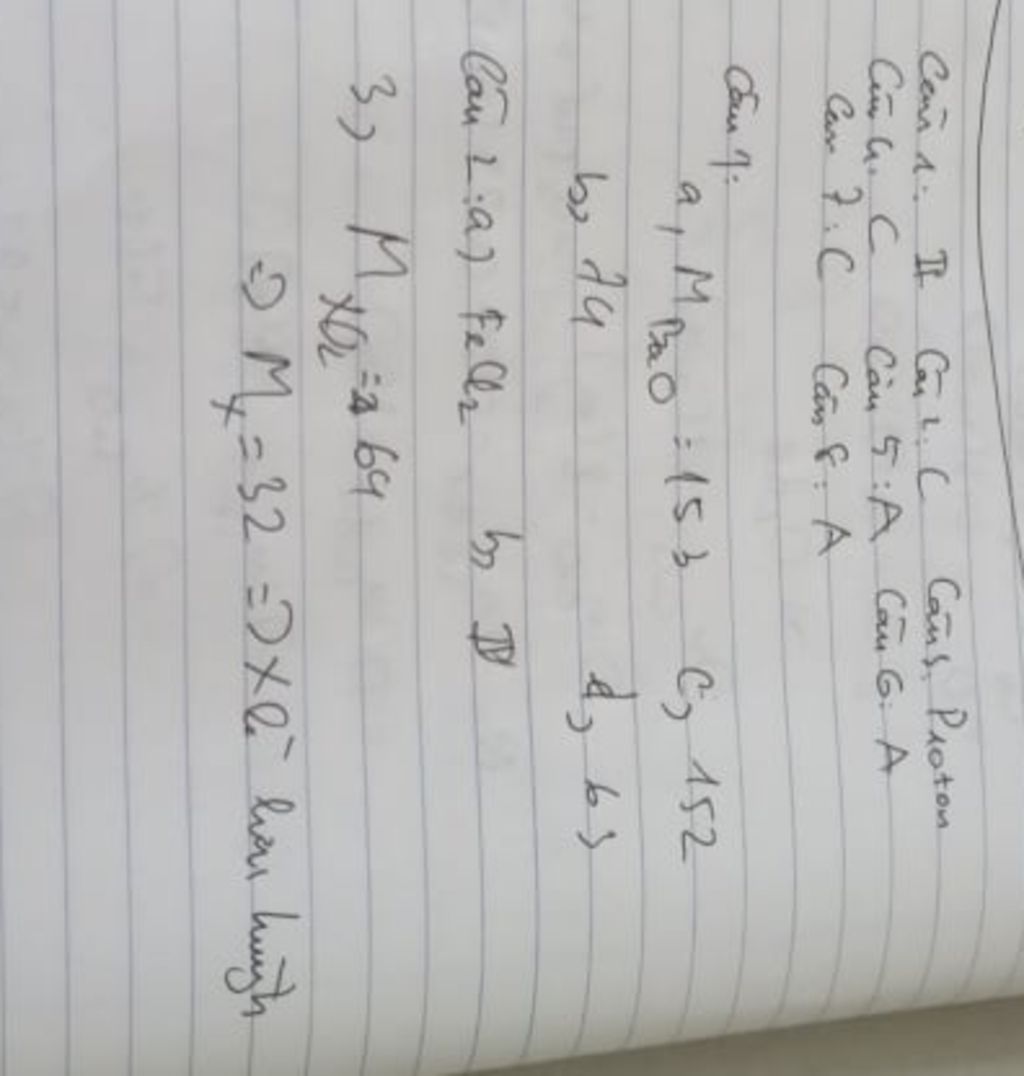 Câu 1: II Câu 2: C Câu 3, Proton
Câu 4: C Câu 5: A Câu 6: A
Câu 7: C Câu 8: A
Câu 1:
a, M BaO = 153 C, 152
b, 74 d, 63
Câu 2: a) FeCl2 b, IV
3, M XO2 = 64
=> M X = 32 => X là lưu huỳnh